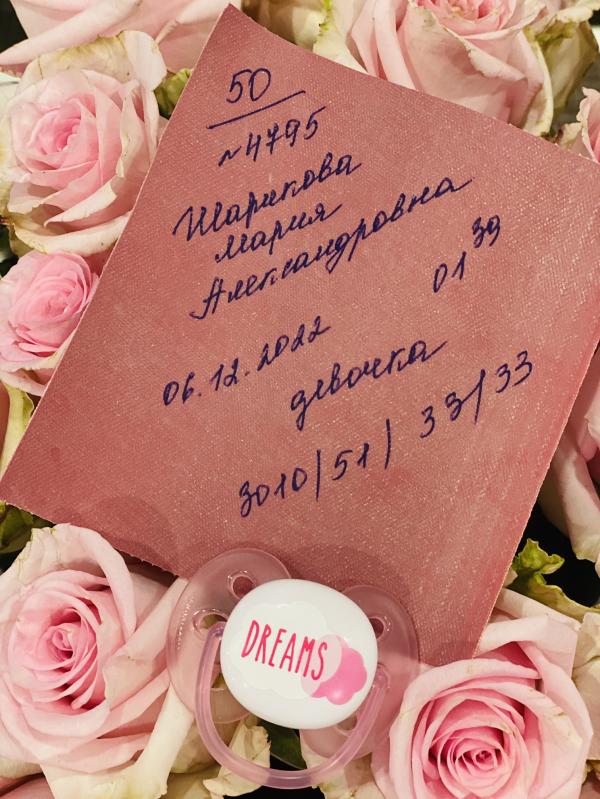 50
№4795
Шарикова
Мария
Александровна
01 39
06.12.2022
девочка
3010/51/ 33/33
DREAMS